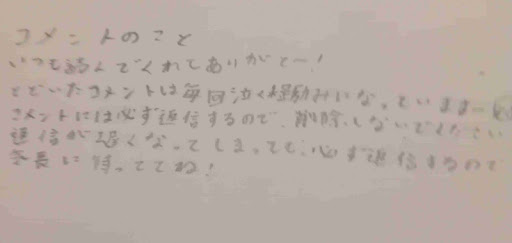 コメントのこと
いつも読んでくれてありがと〜!
とどいたコメントは毎回泣く程励みになっています
コメントには必ず返信するので、削除しないでください
返信が遅くなってしまっても、必ず返信するので
気長に待っててね!